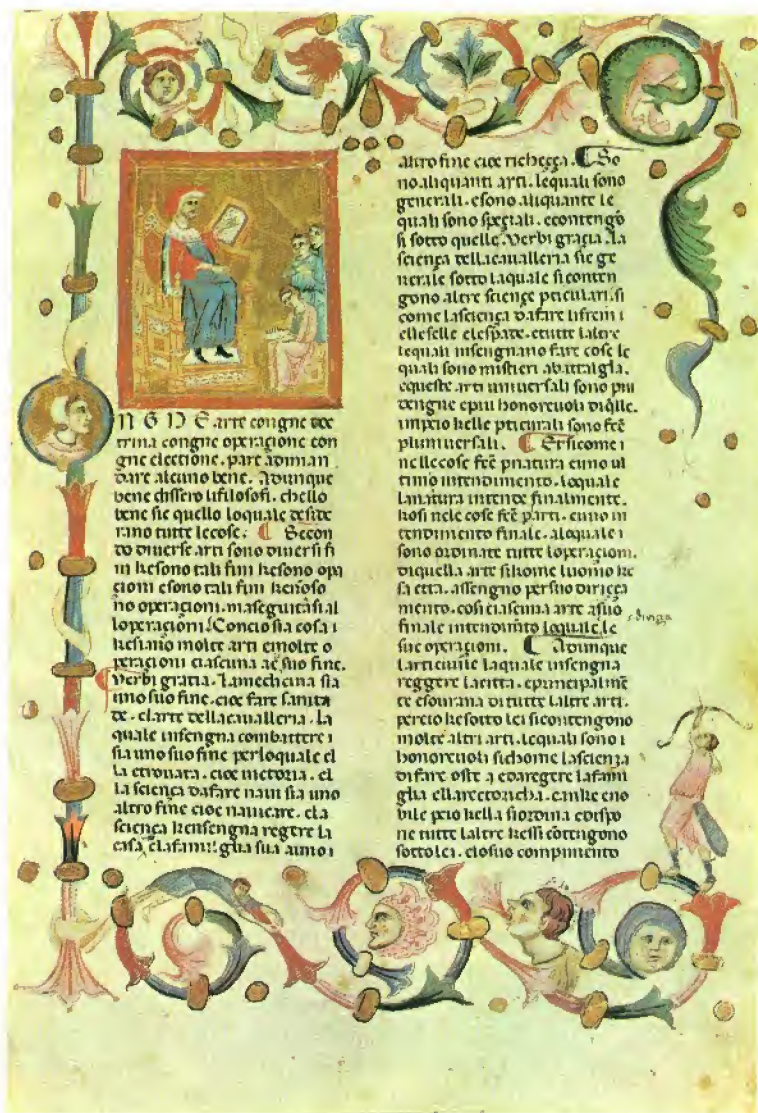 N G N E arte congne doc
trina congne operaçione con
gne electione. pare adiman
dare alcuno bene. Adunque
bene dissero lifilosofi. chello
bene sie quello loquale deside
rano tutte lecose. Secon
do diuerse arti sono diuersi fi
ni kesono tali fini kesono opa
çioni esono tali fini
no operaçioni. maseguitasi al
loperaçioni. Concio sia cosa i
kesiano molte arti emolte o
peraçioni ciascuna ae suo fine.
Verbi gratia. Lamedicina sia
uno suo fine. cioe fare sanita
de. elarte dellacaualleria. la
quale insengna combattere i
sia uno suo fine perloquale el
la etrouata. cioe uictoria. el
la sciença dafare naui sia uno
altro fine cioe nauicare. ela
sciença kensengna regere la
casa elafamilglia sua anno i
altro fine cioe richeçça. So
no aliquanti arti. lequali sono
generali. esono aliquante le
quali sono speçiali. econtengo
si sotto quelle. Verbi graçia. La
sciença dellacaualleria sie ge
nerale sotto laquale siconten
gono altre sciençe pticulari. si
come lasciença dafare lifreni i
elleselle elespate. etutte laltre
lequali insengnano fare cose le
quali sono mistieri abattalgla.
equeste arti uniuersali sono piu
dengne epiu honoreuoli diqlle.
impcio kelle pticulari sono fcē
pluniuersali. Ersicome i
nellecose fcē pnatura euno ul
timo intendimento. loquale
lanatura intende finalmente.
kosi nele cose fcē parti. euno in
tendimento finale. aloquale i
sono ordinate tutte loperaçioni.
diquella arte sikome luomo ke
sa etta. assengno persuo diriçça
mento. cosi ciascuna arte asuo
finale intendimto loquale le
sue operaçioni. Adunque
larticiuile laquale insengna
reggere lacitta. eprincipalmē
te esourana di tutte laltre arti.
percio kesotto lei sicontengono
molte altri arti. lequali sono i
honoreuoli sichome lasciença
difare oste a edaregere lafami
glia ellarectoricha. eanke eno
bile pcio kella siordina edispo
ne tutte laltre kessi cōtengono
sottolei. elosuo compimento